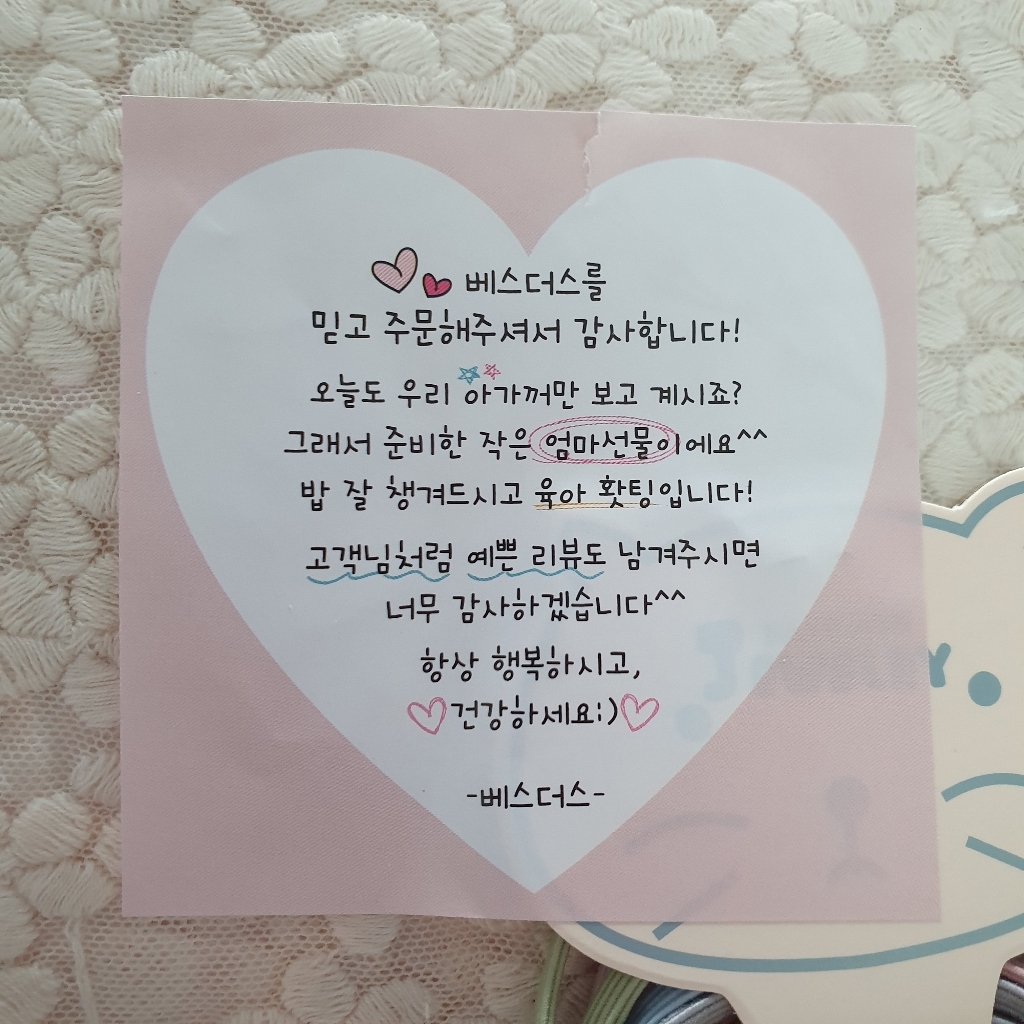 베스더스를
믿고 주문해주셔서 감사합니다!
오늘도 우리 아가꺼만 보고 계시죠?
그래서 준비한 작은 엄마선물이에요^^
밥 잘 챙겨드시고 육아 홧팅입니다!
고객님처럼 예쁜 리뷰도 남겨주시면
너무 감사하겠습니다^^
항상 행복하시고,
건강하세요:)
-베스더스-